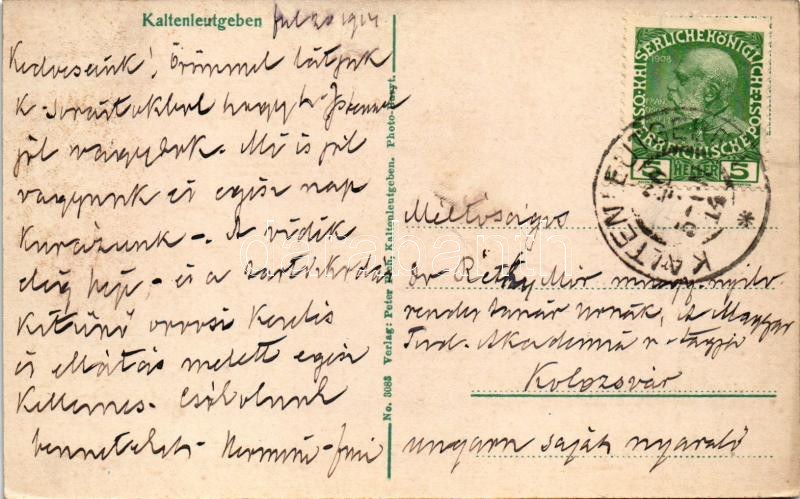 Kaltenleutgeben jul 20 1914
Kedveseink! Örömmel látjuk
k. soraitokból hogy h. Istennek
jól vagytok. Mi is jól
vagyunk és egész nap
kurázunk. A vidék
elég szép, és a tartózkodás
kitünő orvosi kezelés
és ellátás mellett egész
kellemes. Csókolunk
benneteket
No. 3083 Verlag: Peter Kaltenleutgeben. Photo-
KAISERLICHE KÖNIGLICHE ÖSTERREICHISCHE POST
1908
5 HELLER 5
KALTENLEUTGEBEN
Méltóságos
Dr Réthy Mór ny. nyilv.
rendes tanár urnák, a Magyar
Tud. Akadémia r. tagja
Kolozsvár
ungarn saját nyaraló
darabanth